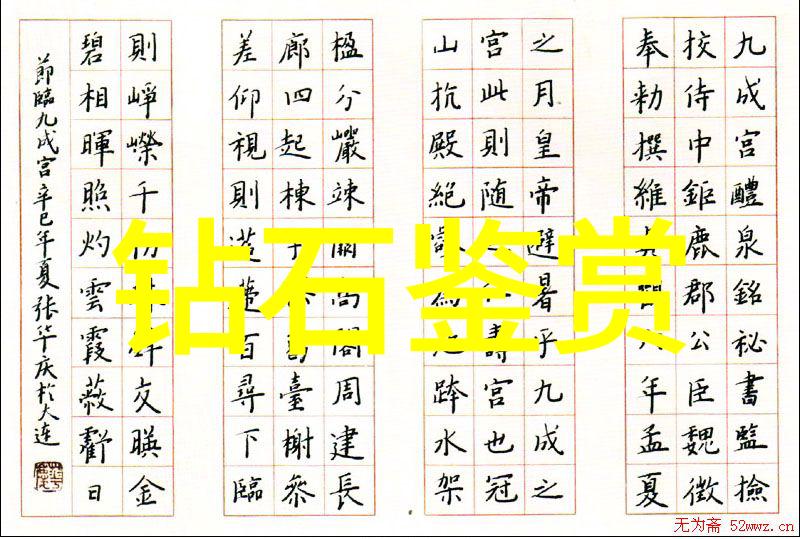 九成宮醴泉銘秘書監撿
挍侍中鉅鹿郡公臣魏徵
奉勅撰維年孟夏
之月皇帝避暑乎九成之
宮此則随壽宮也冠
山抗殿絕為池跨水架
楹分巖竦闕高閣周建長
廊四起棟臺榭參
差仰視則百尋下臨
則崢嶸千交暎金
碧相暉照灼雲霞蔽虧日
節臨九成宮辛巳年夏張华庆於大连
钻石鉴赏
无为斋 52wwz.cn